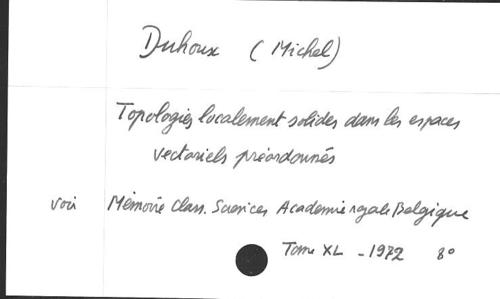 Duhoux (Michel)
Topologies localement solides dans les espaces
vectoriels préordonnés
voir Mémoire Class. Sciences Academie royale Belgique
Tome XL - 1972 8°